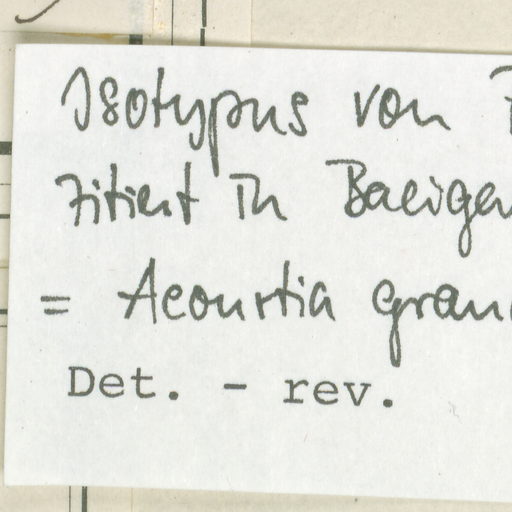 Isotypus von
zitiert in Baeigen
= Acourtia gran
Det. - rev.